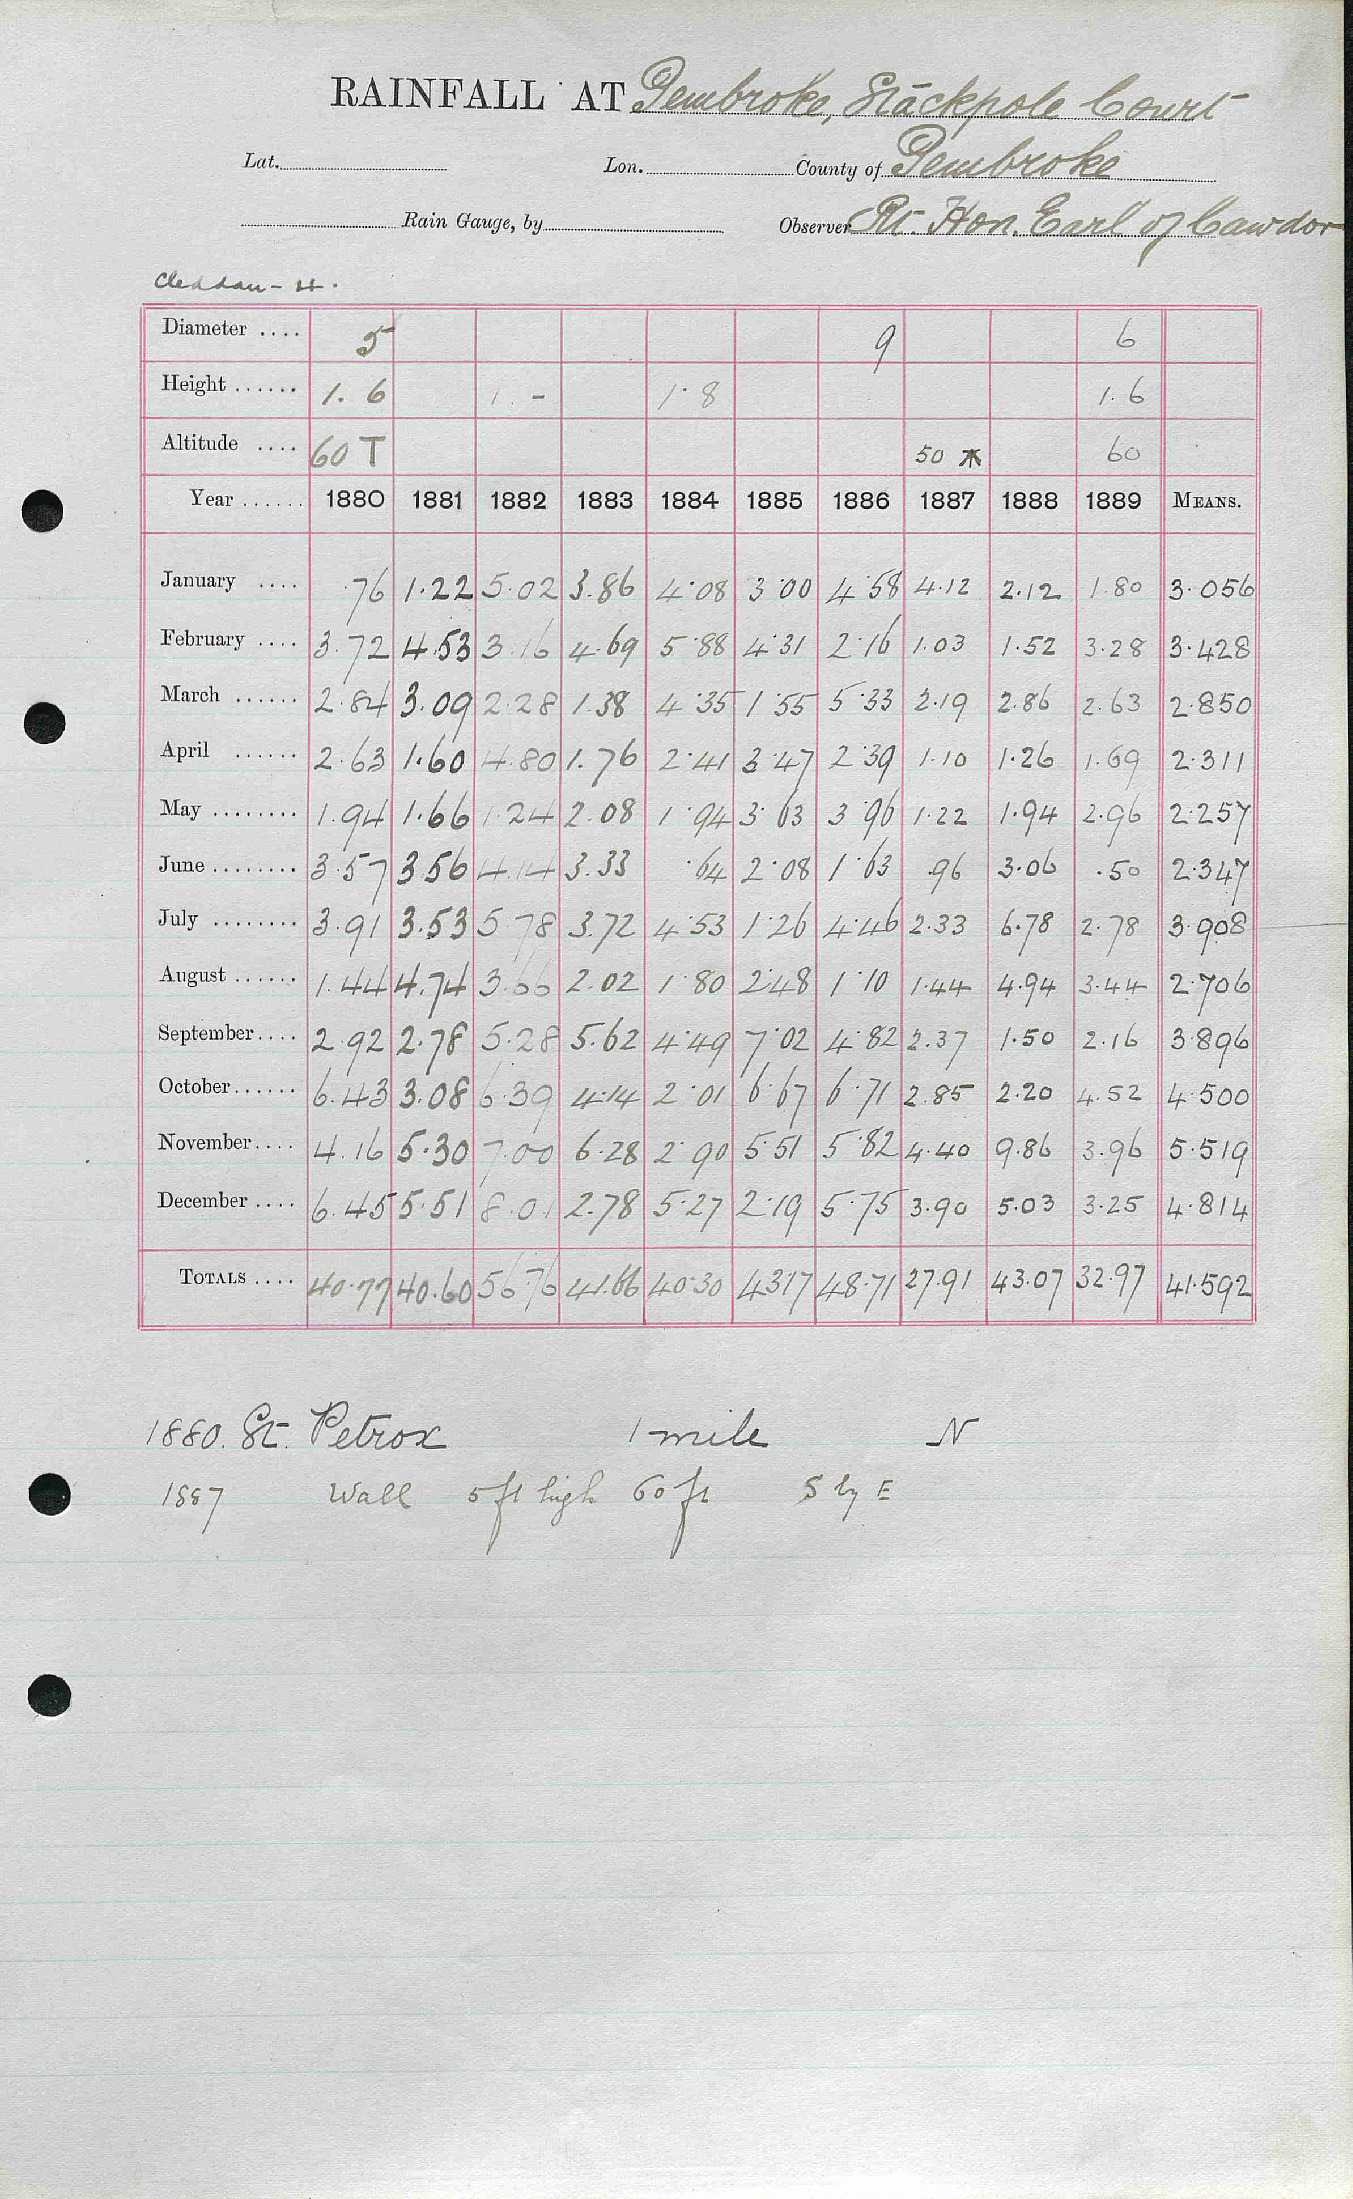 RAINFALL AT Pembroke, Stackpole Court
Lat. Lon. County of Pembroke
Rain Gauge, by Observer Rt. Hon. Earl of Cawdor
Cleddau - 4.
Diameter .... 5 9 6
Height ...... 1. 6 1. - 1.8 1.6
Altitude .... 60 T 50 60
Year ...... 1880 1881 1882 1883 1884 1885 1886 1887 1888 1889 MEANS.
January .... .76 1.22 5.02 3.86 4.08 3.00 4.58 4.12 2.12 1.80 3.056
February .... 3.72 4.53 3.16 4.69 5.88 4.31 2.16 1.03 1.52 3.28 3.428
March ...... 2.84 3.09 2.28 1.38 4.35 1.55 5.33 2.19 2.86 2.63 2.850
April ...... 2.63 1.60 4.80 1.76 2.41 3.47 2.39 1.10 1.26 1.69 2.311
May ........ 1.94 1.66 1.24 2.08 1.94 3.63 3.96 1.22 1.94 2.96 2.257
June ........ 3.57 3.56 4.14 3.33 .64 2.08 1.63 .96 3.06 .50 2.347
July ........ 3.91 3.53 5.78 3.72 4.53 1.26 4.46 2.33 6.78 2.78 3.908
August ...... 1.44 4.74 3.66 2.02 1.80 2.48 1.10 1.44 4.94 3.44 2.706
September .... 2.92 2.78 5.28 5.62 4.49 7.02 4.82 2.37 1.50 2.16 3.896
October ...... 6.43 3.08 6.39 4.14 2.01 6.67 6.71 2.85 2.20 4.52 4.500
November .... 4.16 5.30 7.00 6.28 2.90 5.51 5.82 4.40 9.86 3.96 5.519
December .... 6.45 5.51 8.01 2.78 5.27 2.19 5.75 3.90 5.03 3.25 4.814
TOTALS .... 40.77 40.60 56.76 41.66 40.30 43.17 48.71 27.91 43.07 32.97 41.592
1880. St. Petrox 1 mile N
1887 Wall 5 ft high 60 ft S by E